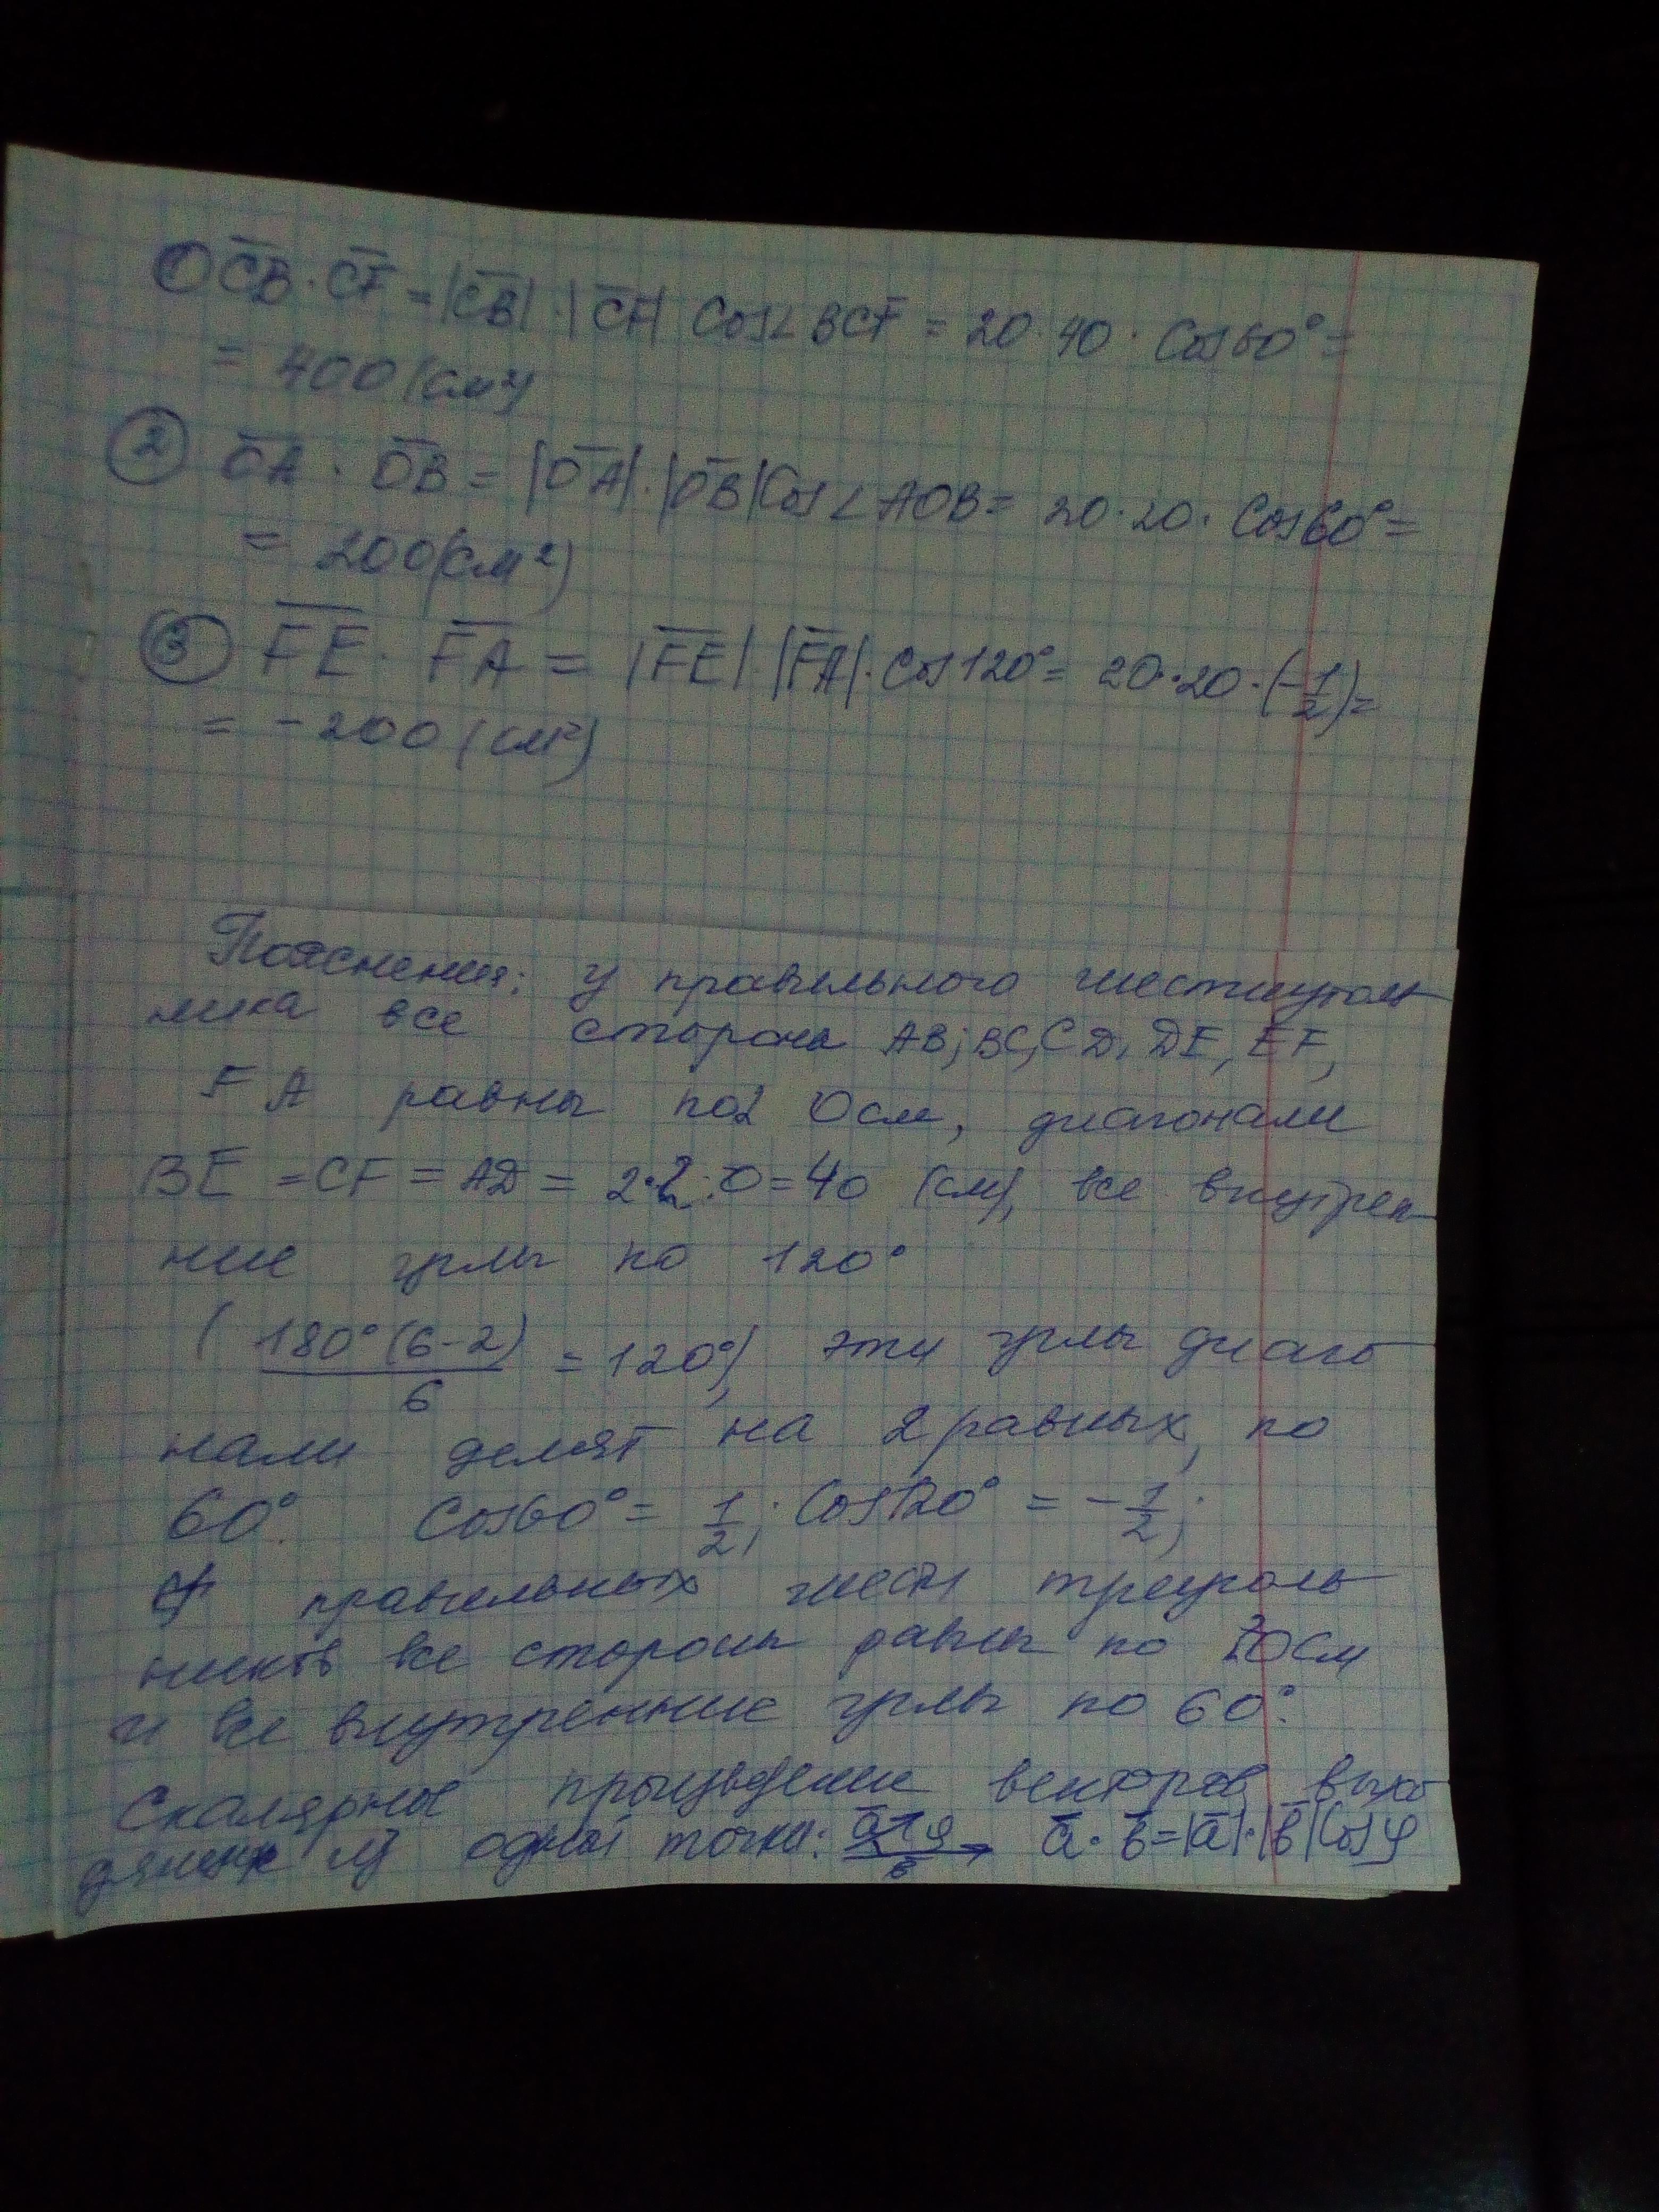 ① C̅B̅ · C̅F̅ = |C̅B̅| · |C̅F̅| Cos∠BCF = 20·40 · Cos60° =
= 400 (см²)
② O̅A̅ · O̅B̅ = |O̅A̅| · |O̅B̅| Cos∠AOB = 20·20 · Cos60° =
= 200(см²)
③ F̅E̅ · F̅A̅ = |F̅E̅| · |F̅A̅| · Cos120° = 20·20·(-1/2) =
= -200 (см²)
Пояснения: У правильного шестиуголь
ника все стороны AB; BC, CD, DE, EF,
FA равны по 20см, диагонали
BE = CF = AD = 2·20 = 40 (см), все внутрен
ние углы по 120°
(180°(6-2)/6 = 120°), эти углы диаго
нали делят на 2 равных, по
60°. Cos60° = 1/2; Cos120° = -1/2;
У правильных шести треуголь
ников все стороны равны по 20см
и все внутренние углы по 60°.
Скалярное произведение векторов, выхо
дящих из одной точки: a̅ φ b̅ a̅ · b̅ = |a̅| · |b̅| Cosφ